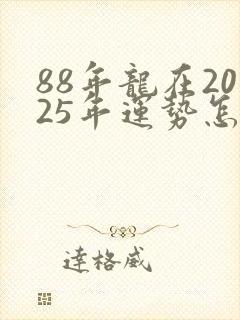 88年龍在20
25年運势怎
達格威